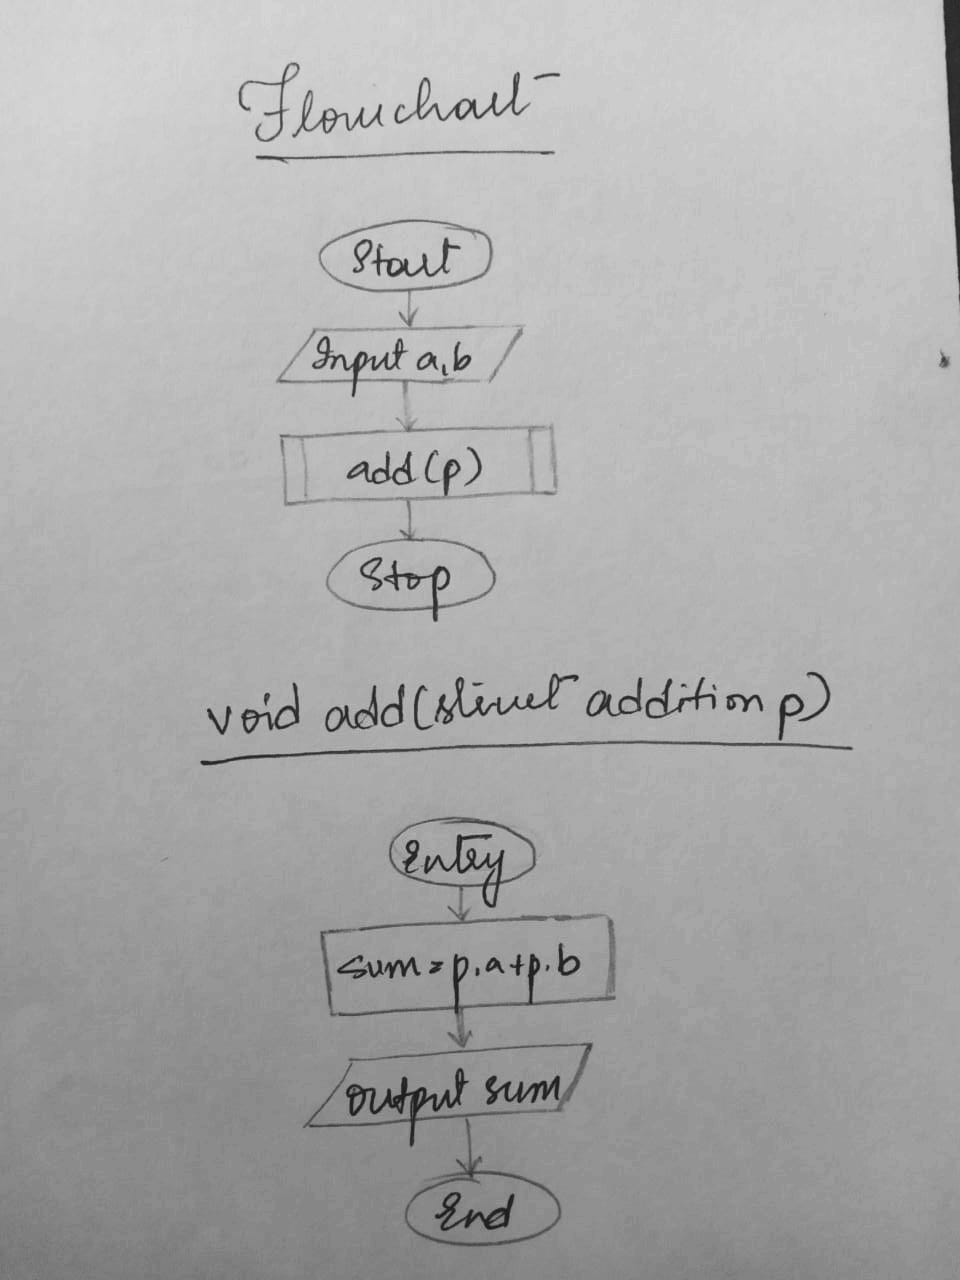 Flowchart
Start
Input a,b
add(p)
Stop
void add(struct addition p)
Entry
sum=p.a+p.b
output sum
End